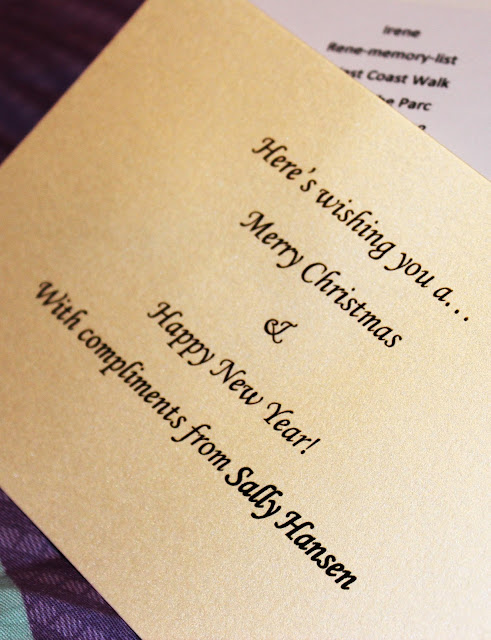 Irene
Rene-memory-list
Coast Walk
Parc
Here's wishing you a...
Merry Christmas
&
Happy New Year!
With compliments from Sally Hansen